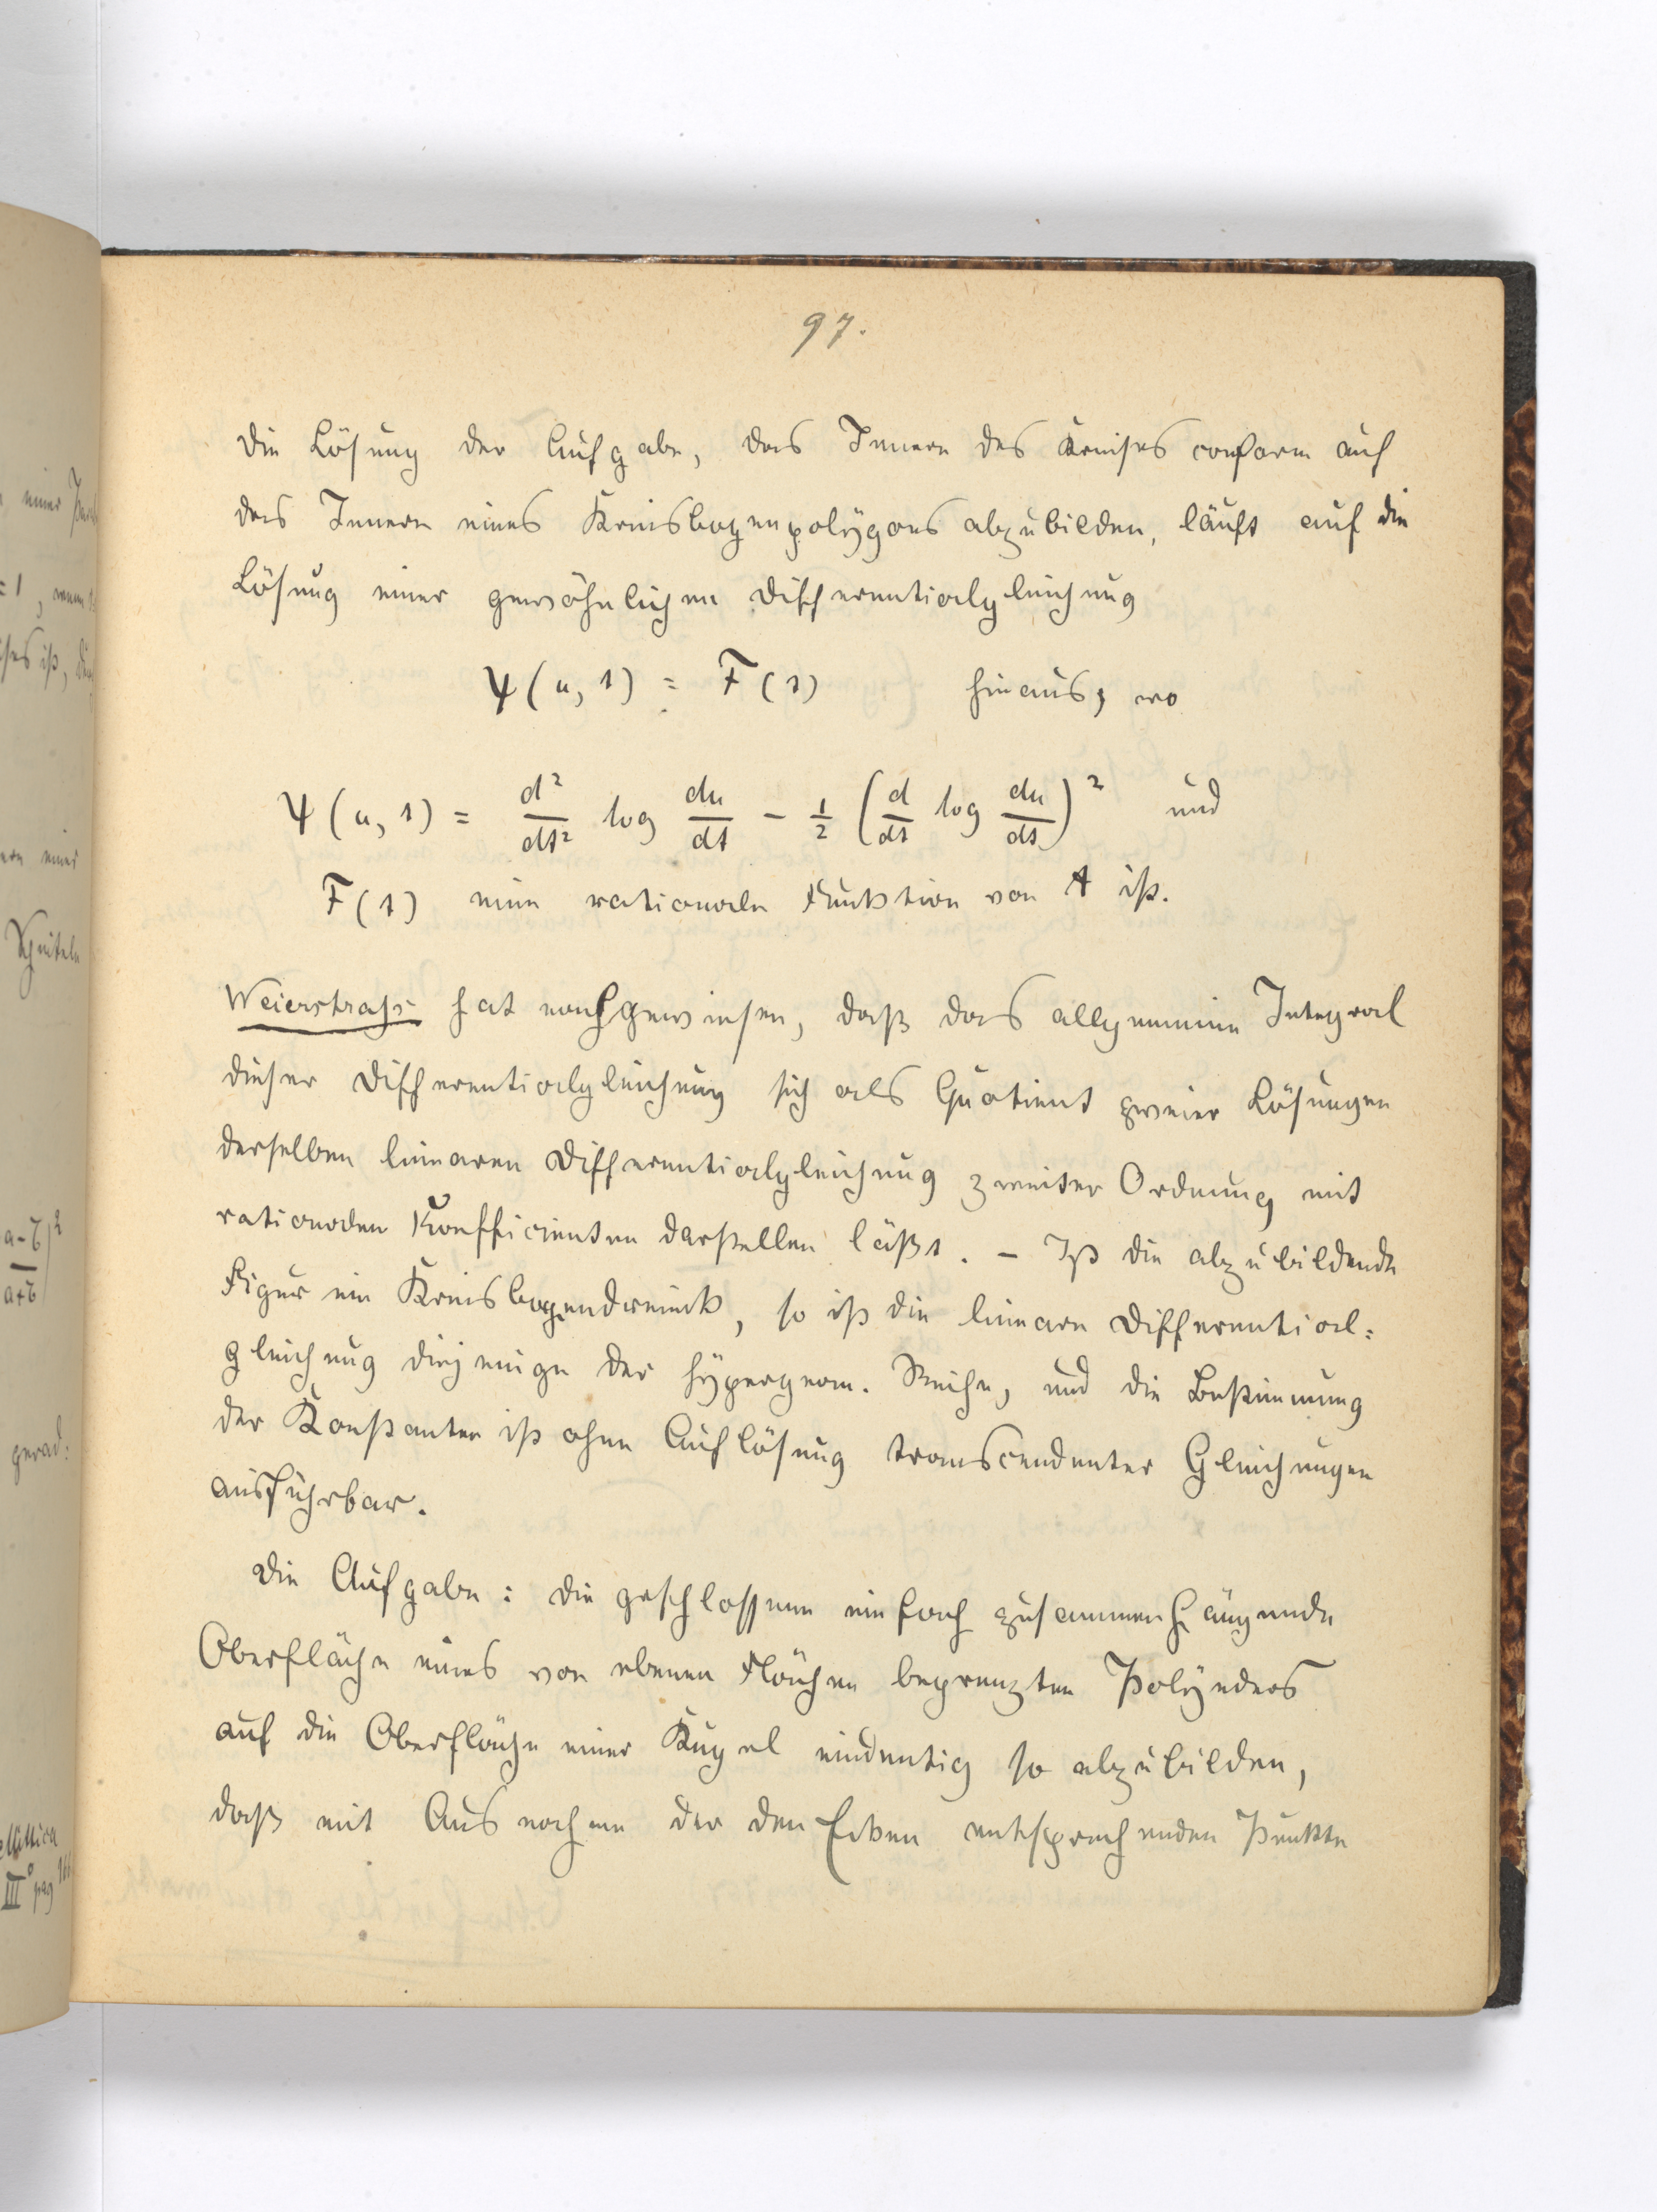 97.
Die Lösung der Aufgabe, das Innere des Kreises conform auf
das Innere eines Kreisbogenpolygons abzubilden, läuft auf die
Lösung einer gewöhnlichen Differentialgleichung
Ψ(u, t) = F(t) hinaus, wo
Ψ(u, t) = d²/dt² log du/dt - 1/2 (d/dt log du/dt)² und
F(t) eine rationale Funktion von t ist.
Weierstraß hat nachgewiesen, daß das allgemeine Integral
dieser Differentialgleichung sich als Quotient zweier Lösungen
derselben linearen Differentialgleichung zweiter Ordnung mit
rationalen Koefficienten darstellen läßt. – Ist die abzubildende
Figur ein Kreisbogendreieck, so ist die lineare Differential:
gleichung diejenige der hypergeom. Reihe, und die Bestimmung
der Konstanten ist ohne Auflösung transcendenter Gleichungen
ausführbar.
Die Aufgabe: Die geschlossene einfach zusammenhängende
Oberfläche eines von ebenen Flächen begrenzten Polyeders
auf die Oberfläche einer Kugel eindeutig so abzubilden,
daß mit Ausnahme der den Ecken entsprechenden Punkte